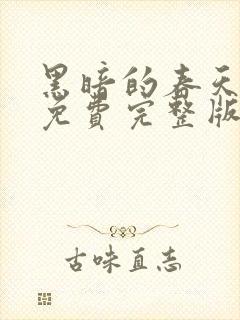 黑暗的春天
免費完整版
古味直志